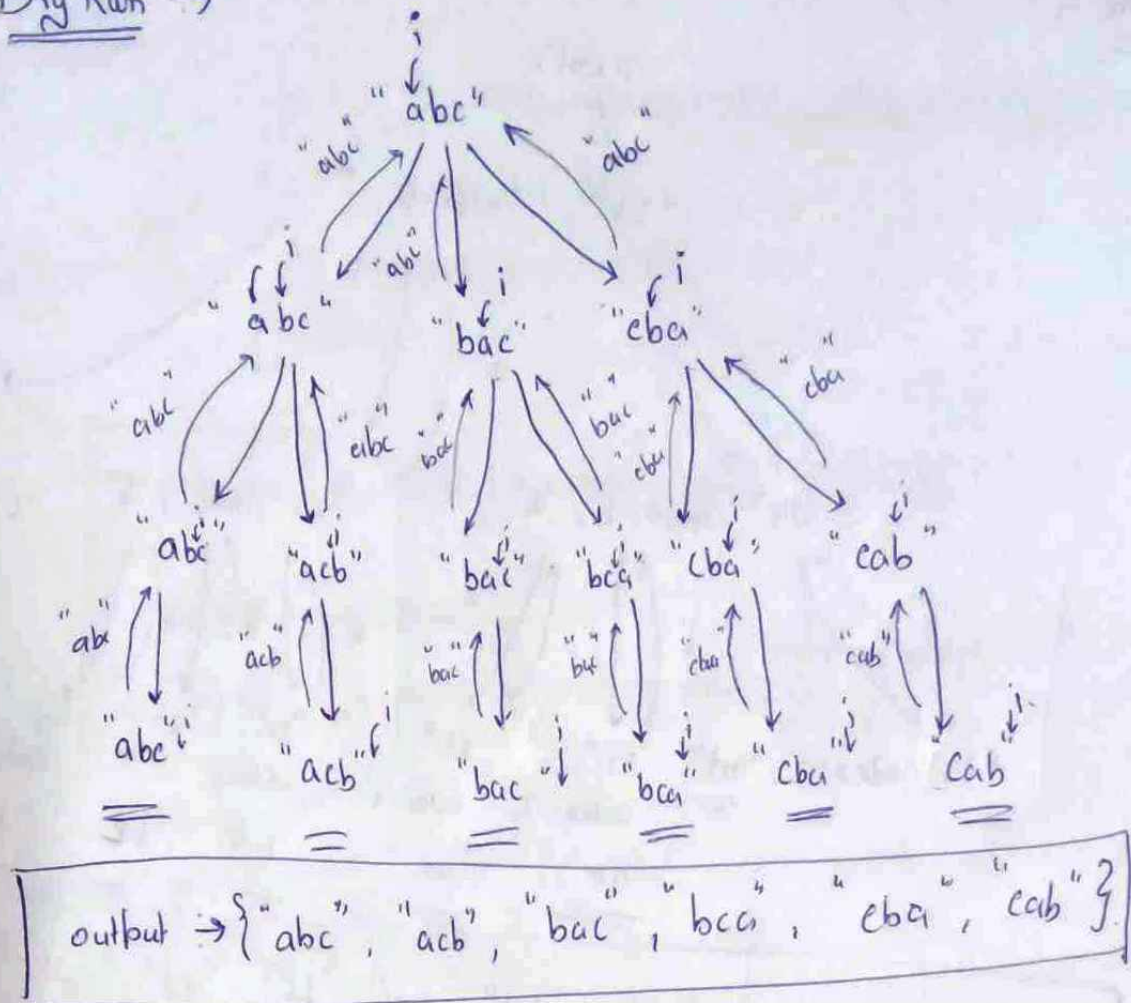 Dry Run :→
i
"abc"
"abc" "abc" "abc"
i i i
"abc" "bac" "cba"
"abc" "abc" "bac" "bac" "cba" "cba"
i i i i i i
"abc" "acb" "bac" "bca" "cba" "cab"
"abc" "acb" "bac" "cba" "cab"
i i i i i i
"abc" "acb" "bac" "bca" "cba" "cab"
output → {"abc", "acb", "bac", "bca", "cba", "cab"}